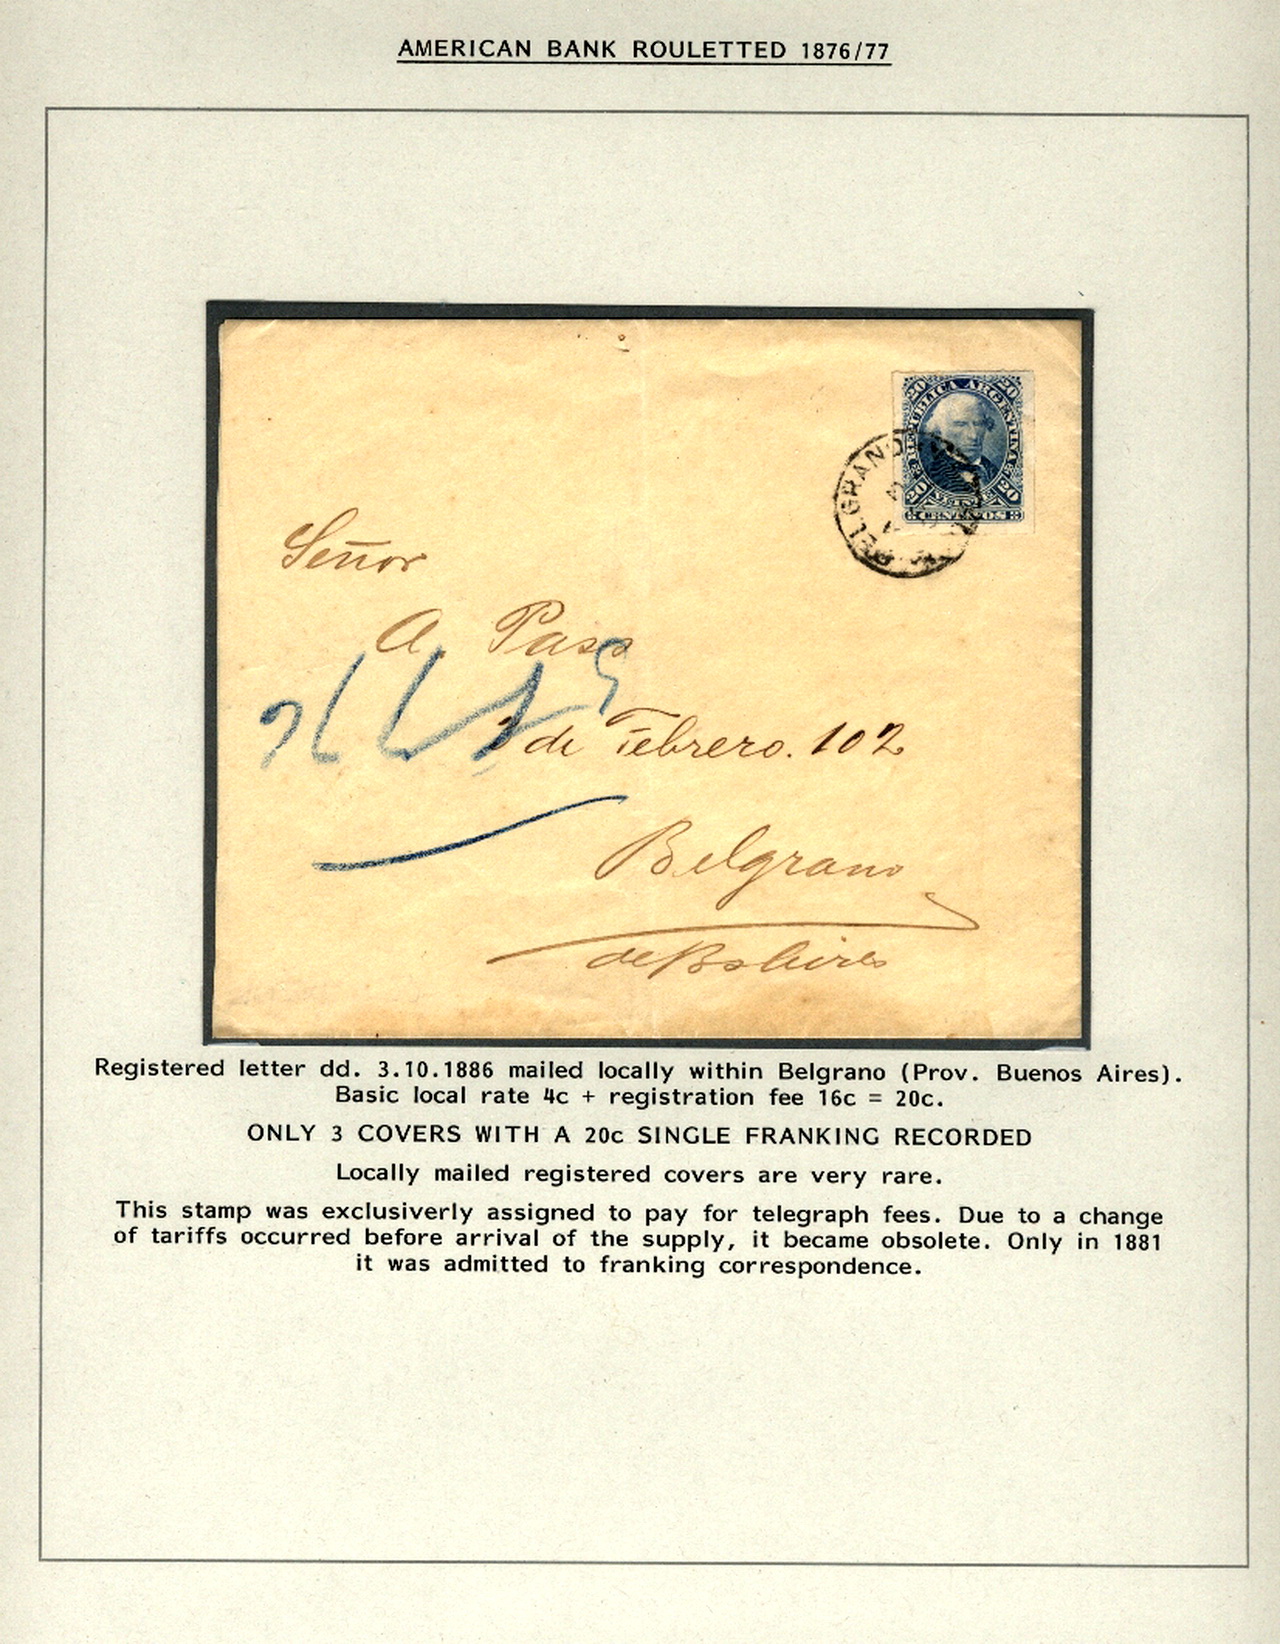 AMERICAN BANK ROULETTED 1876/77
20 20
REPUBLICA ARGENTINA
20 VEINTE 20
CENTAVOS
BELGRANO
Señor
A. Pass
de Febrero. 102
Belgrano
de Bs Aires
Registered letter dd. 3.10.1886 mailed locally within Belgrano (Prov. Buenos Aires).
Basic local rate 4c + registration fee 16c = 20c.
ONLY 3 COVERS WITH A 20c SINGLE FRANKING RECORDED
Locally mailed registered covers are very rare.
This stamp was exclusiverly assigned to pay for telegraph fees. Due to a change
of tariffs occurred before arrival of the supply, it became obsolete. Only in 1881
it was admitted to franking correspondence.